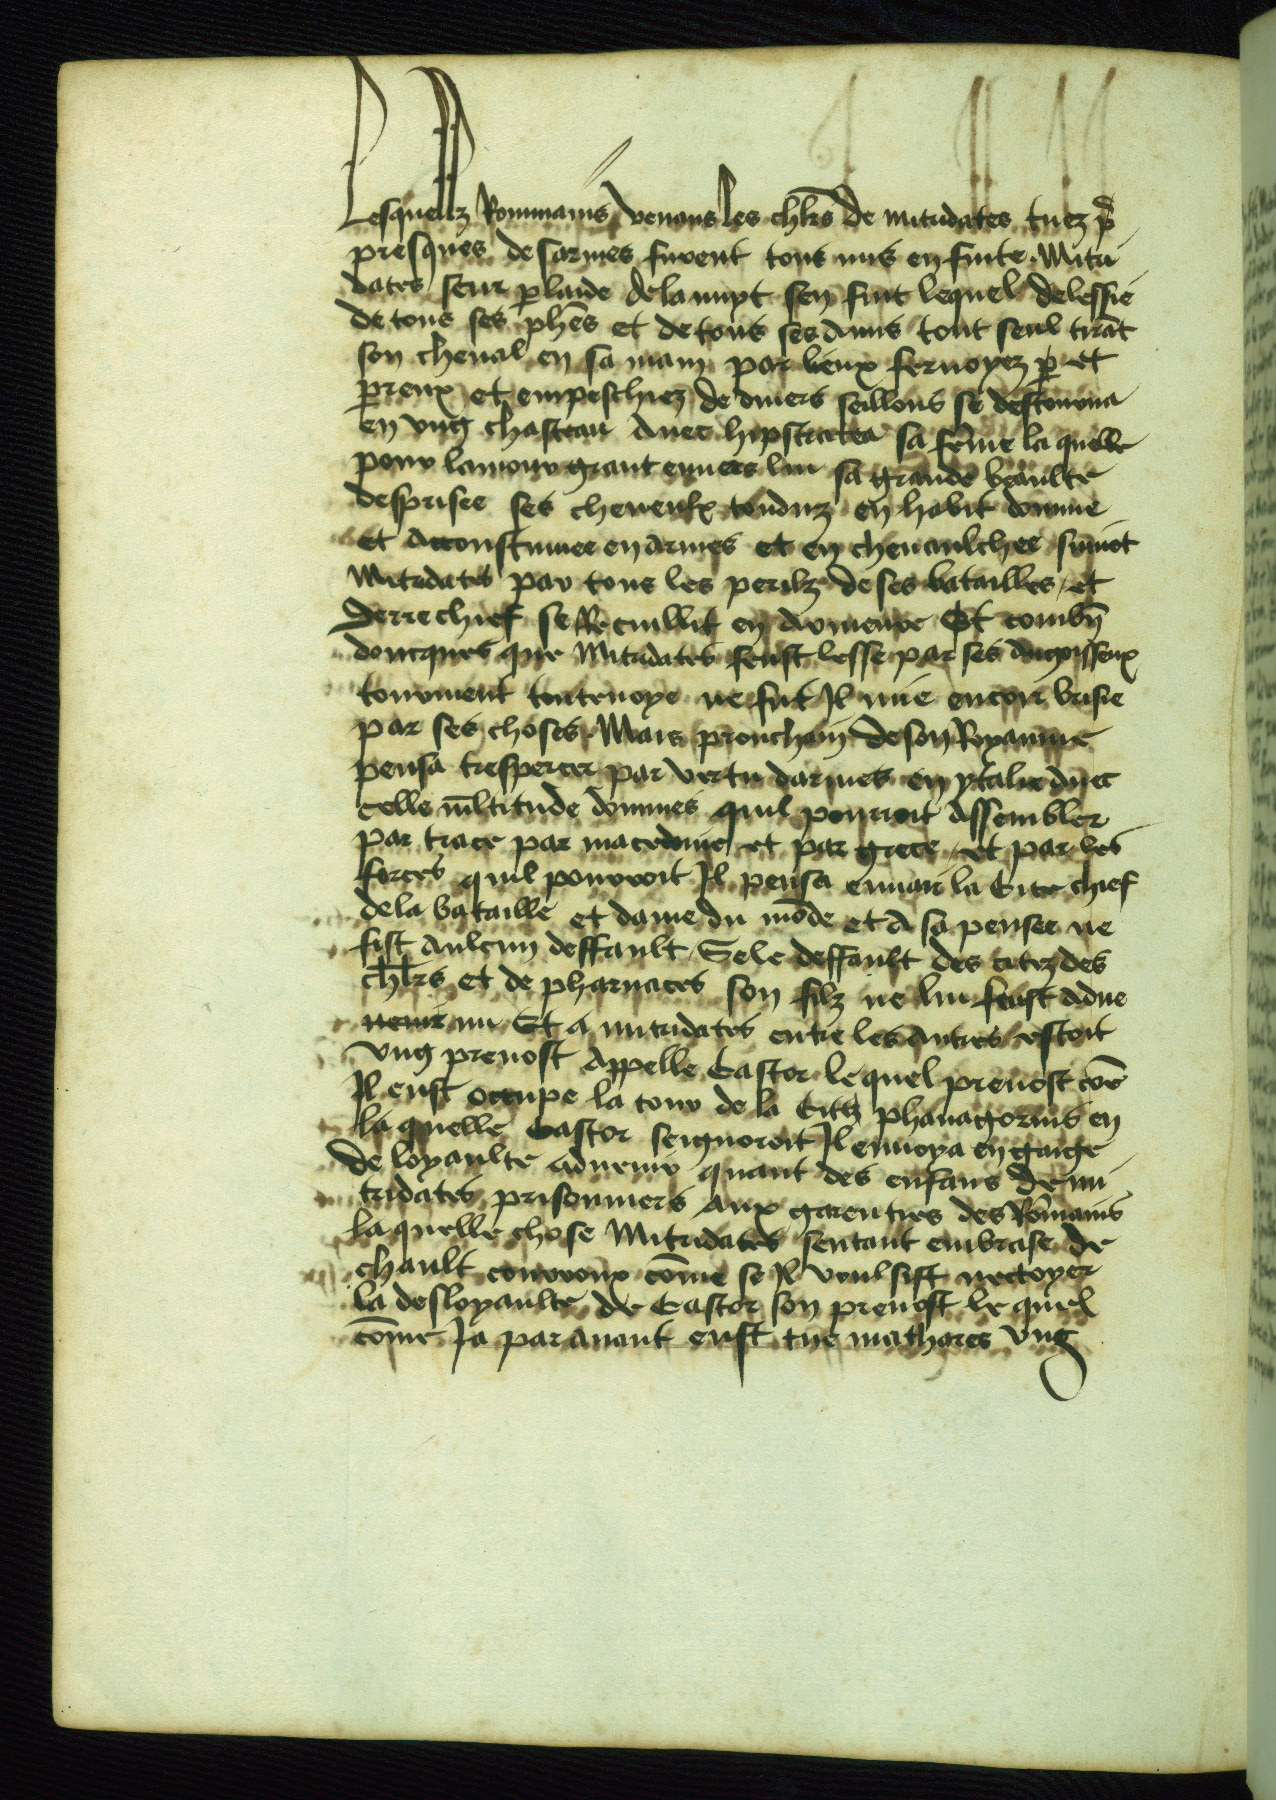 Lesquellz Rommains venans les chl̅rs de mitridates tuez p̅
presques desarmes furent tous mis en fuite. Mitri
dates seur p laide de la nuyt sen fuit lequel delessie
de tous ses ph̅es et de tous ses amis tout seul tirãt
son cheual en sa main par lieux feruoyez p et
preux et empeschiez de diuers seillons se destourna
en vng chasteau auec hipstratea sa fẽme la quelle
pour lamour grant enuers lui sa grande beaulte
desprisee ses cheueulx tonduz en habit domme
et acconstumee en armes et en cheuaulchee suiuot
Mitridates par tous les perilz de ses batailles, et
derrechief se Recuillit en armenye Et combñ
doncques que Mitridates feust lesse par ses angoisseux
tourment tentenoye ne fut Il mie encor brisie
par ses choses. Mais prouchain de son Royaume
pensa trespercer par vertu darmes en ytalie auec
celle ml̅titude dommes quil pourroit assembler
par trace par macedonie et par grece, et par les
forces quil pouuoit Il pensa enuair la Cite chief
de la bataille et dame du mõde et a sa pensee ne
fist aulcun deffault, Se le deffault des citez des
chl̅rs et de pharnaces son filz ne lui feust adue
nenir nu Et a mitridates entre les autres estoit
vng preuost appelle Castor lequel preuost cõe
Il eust occupe la tour de la Citez phanagorius en
la quelle Castor seignoroit Il enuoya en gaige
de loyaulte aduenir quant des enfans de mi
tridates prisonniers aux garentirs des Rõmains
la quelle chose Mitridates sentant embrase de
chault courroux cõme se Il voulsist nectoyer
la desloyaulte de Castor son preuost le quel
cõme Ja parauant eust tue mathares vng